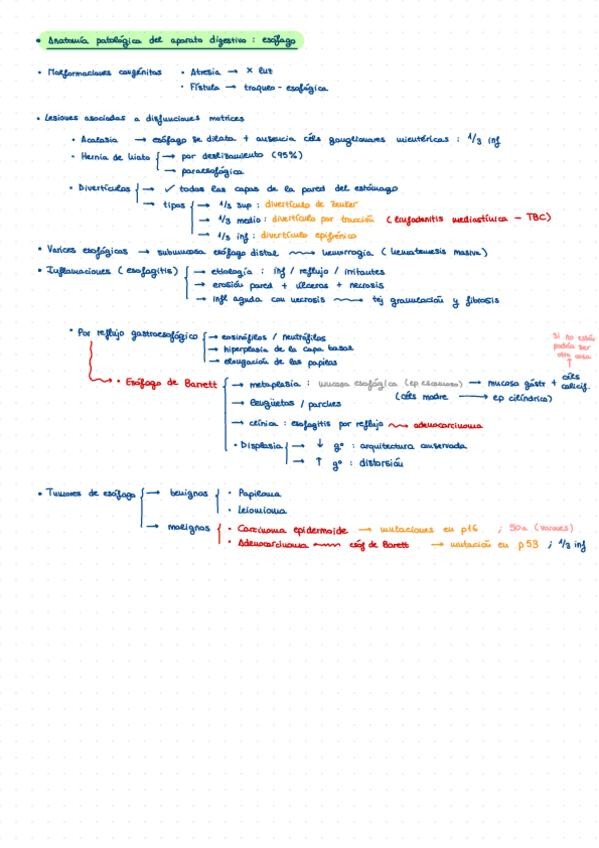 • Anatomía patológica del aparato digestivo : esófago
• Malformaciones congénitas • Atresia → × luz
• Fístula → traqueo - esofágica
• Lesiones asociadas a disfunciones motrices
• Acalasia → esófago se dilata + ausencia céls ganglionares mientéricas : 1/3 inf
• Hernia de hiato → por deslizamiento (95%)
→ paraesofágica
• Divertículos → ✓ todas las capas de la pared del estómago
→ tipos → 1/3 sup : divertículo de Zenker
→ 1/3 medio : divertículo por tracción (linfadenitis mediastínica - TBC)
→ 1/3 inf : divertículo epifrénico
• Varices esofágicas → submucosa esófago distal → hemorragia (hematemesis masiva)
• Inflamaciones (esofagitis) → etiología : inf / reflujo / irritantes
→ erosión pared + úlceras + necrosis
→ infl aguda con necrosis → tej granulación y fibrosis
• Por reflujo gastroesofágico → eosinófilos / neutrófilos
→ hiperplasia de la capa basal
→ elongación de las papilas
Si no están
podría ser
otra cosa
↑
• Esófago de Barrett → metaplasia : mucosa esofágica (ep escamoso) → mucosa gástr + céls calicif.
(céls madre → ep cilíndrico)
→ lengüetas / parches
→ clínica : esofagitis por reflujo → adenocarcinoma
• Displasia → ↓ gº : arquitectura conservada
→ ↑ gº : distorsión
• Tumores de esófago → benignos • Papiloma
• Leiomioma
→ malignos • Carcinoma epidermoide → mutaciones en p16 ; 50a (varones)
• Adenocarcinoma → esóf de Barett → mutación en p53 ; 1/3 inf